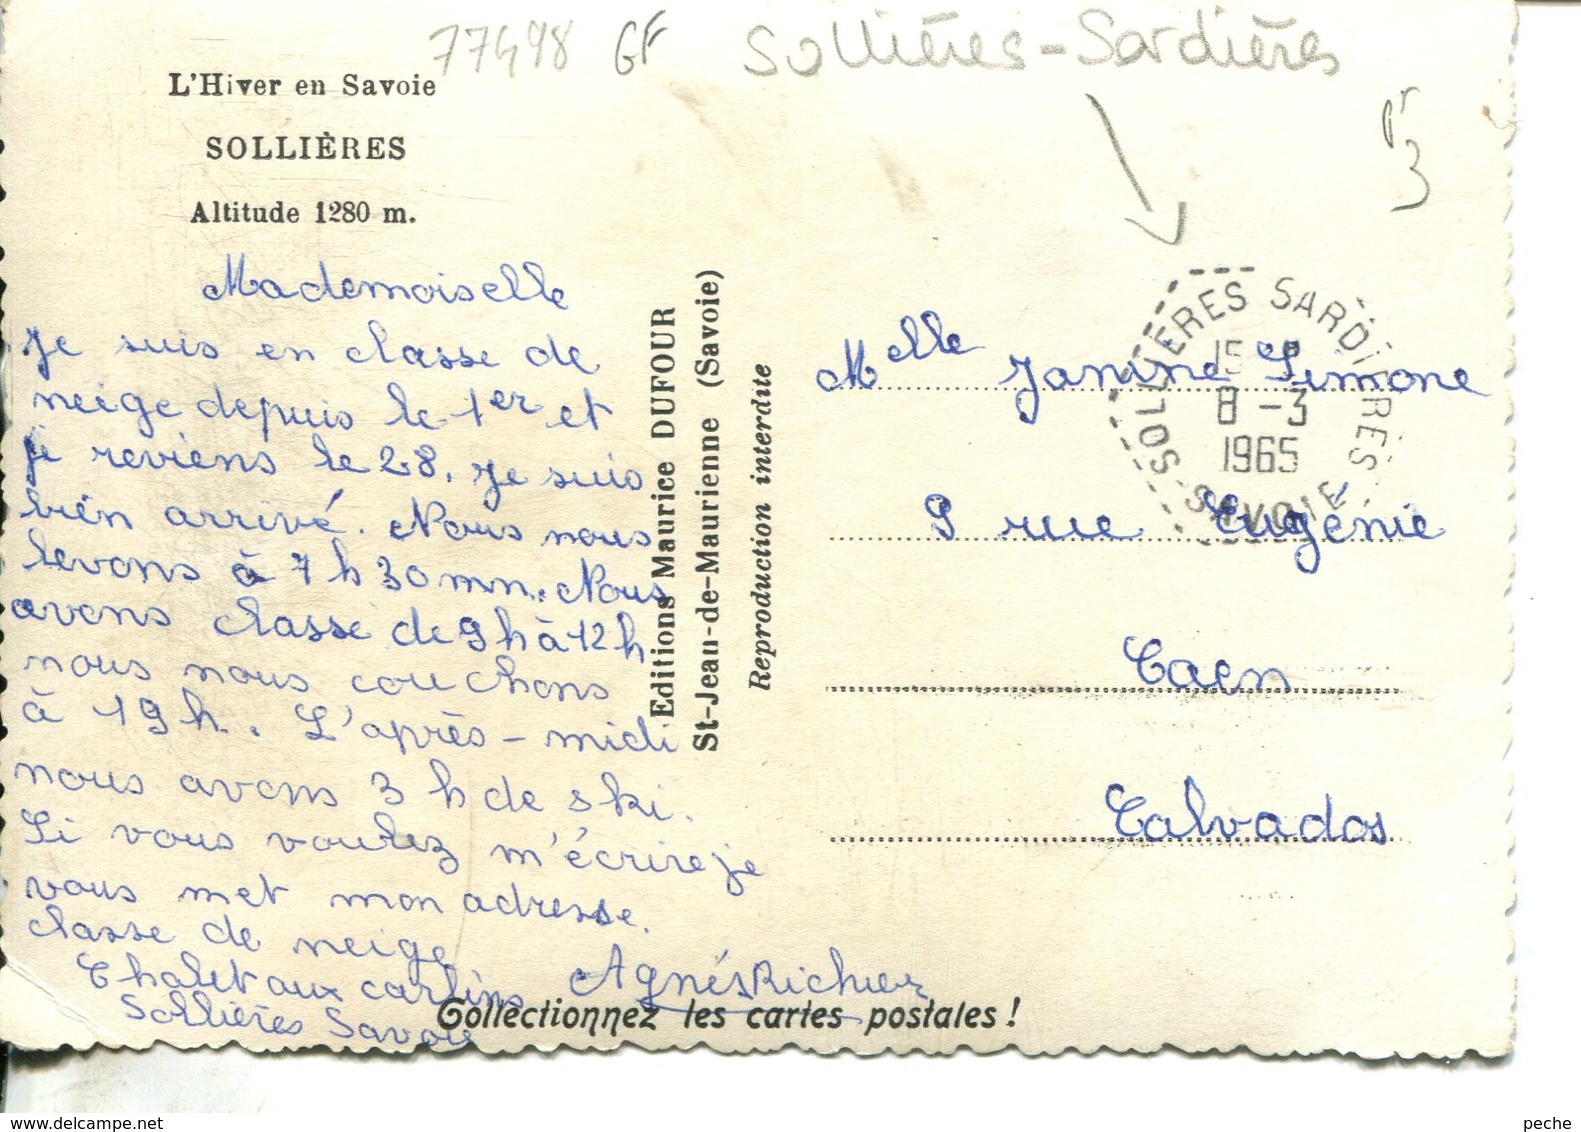 77498 GF Sollières-Sardières
3
L'Hiver en Savoie
SOLLIÈRES
Altitude 1280 m.
Mademoiselle
Je suis en classe de
neige depuis le 1er et
je reviens le 28. Je suis
bien arrivé. Nous nous
levons à 7 h 30 mn. Nous
avons classe de 9h à 12 h
nous nous couchons
à 19 h. L'après-midi
nous avons 3 h de ski.
Si vous voulez m'écrire je
vous met mon adresse.
classe de neige
Chalet aux carlins
Sollières Savoie
Agnès Richier
Editions Maurice DUFOUR
St-Jean-de-Maurienne (Savoie)
Reproduction interdite
SOLLIERES SARDIERES
15
8 - 3
1965
SAVOIE
Melle Janine Simone
9 rue Eugénie
Caen
Calvados
Collectionnez les cartes postales !
www.delcampe.net
peche